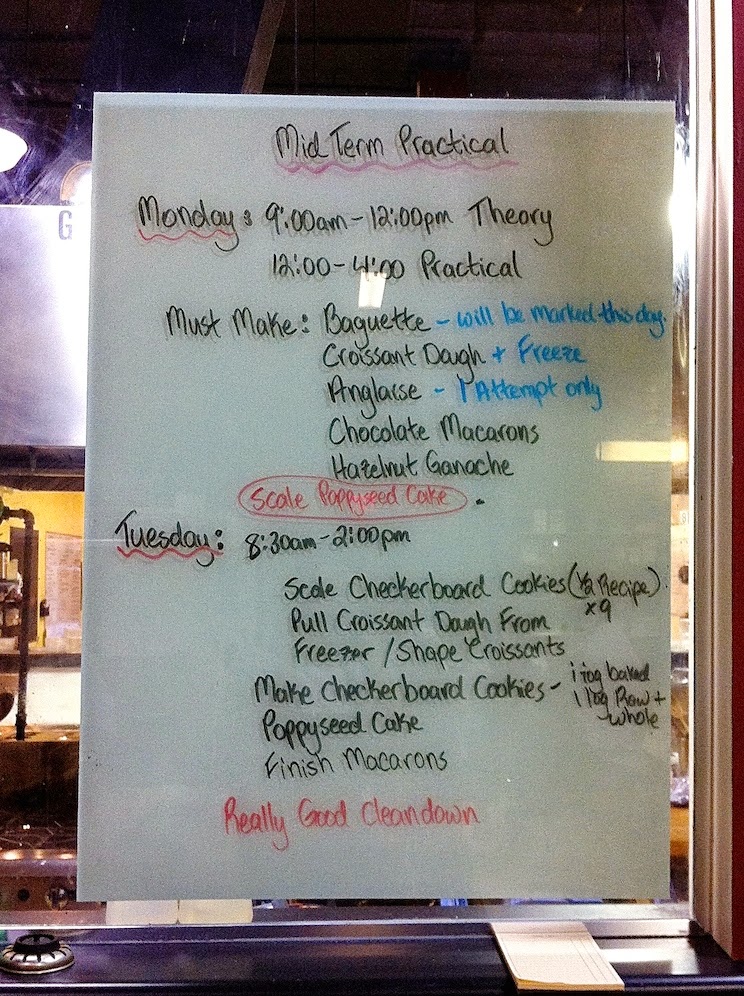 Mid Term Practical
Monday: 9:00am-12:00pm Theory
12:00-4:00 Practical
Must Make: Baguette - will be marked this day.
Croissant Dough + Freeze
Anglaise - 1 Attempt only
Chocolate Macarons
Hazelnut Ganache
Scale Poppyseed Cake
Tuesday: 8:30am-2:00pm
Scale Checkerboard Cookies (1/2 Recipe)
x9
Pull Croissant Dough From
Freezer / Shape Croissants
Make Checkerboard Cookies - 1 log baked
1 log Raw +
whole
Poppyseed Cake
Finish Macarons
Really Good Cleandown
G